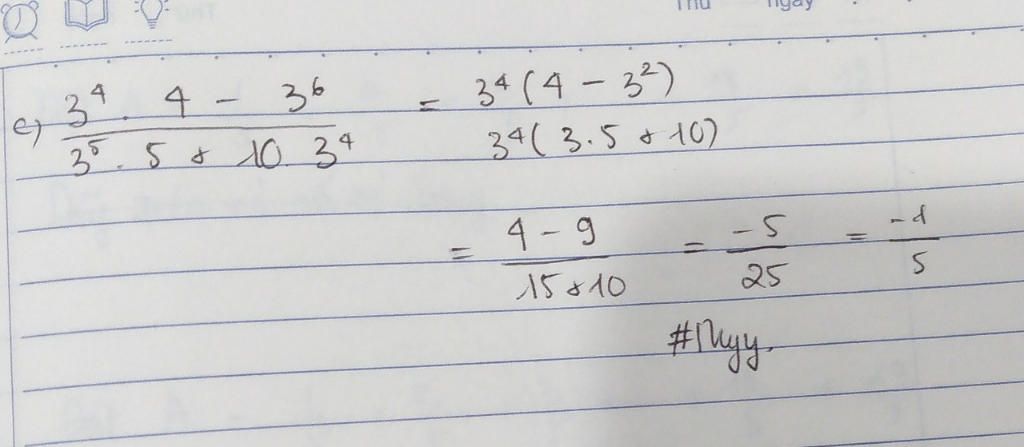 Thứ ngày
c) 3⁴ . 4 - 3⁶ / 3⁵ . 5 + 10 3⁴ = 3⁴(4 - 3²) / 3⁴(3.5 + 10)
= 4 - 9 / 15 + 10 = -5 / 25 = -1 / 5